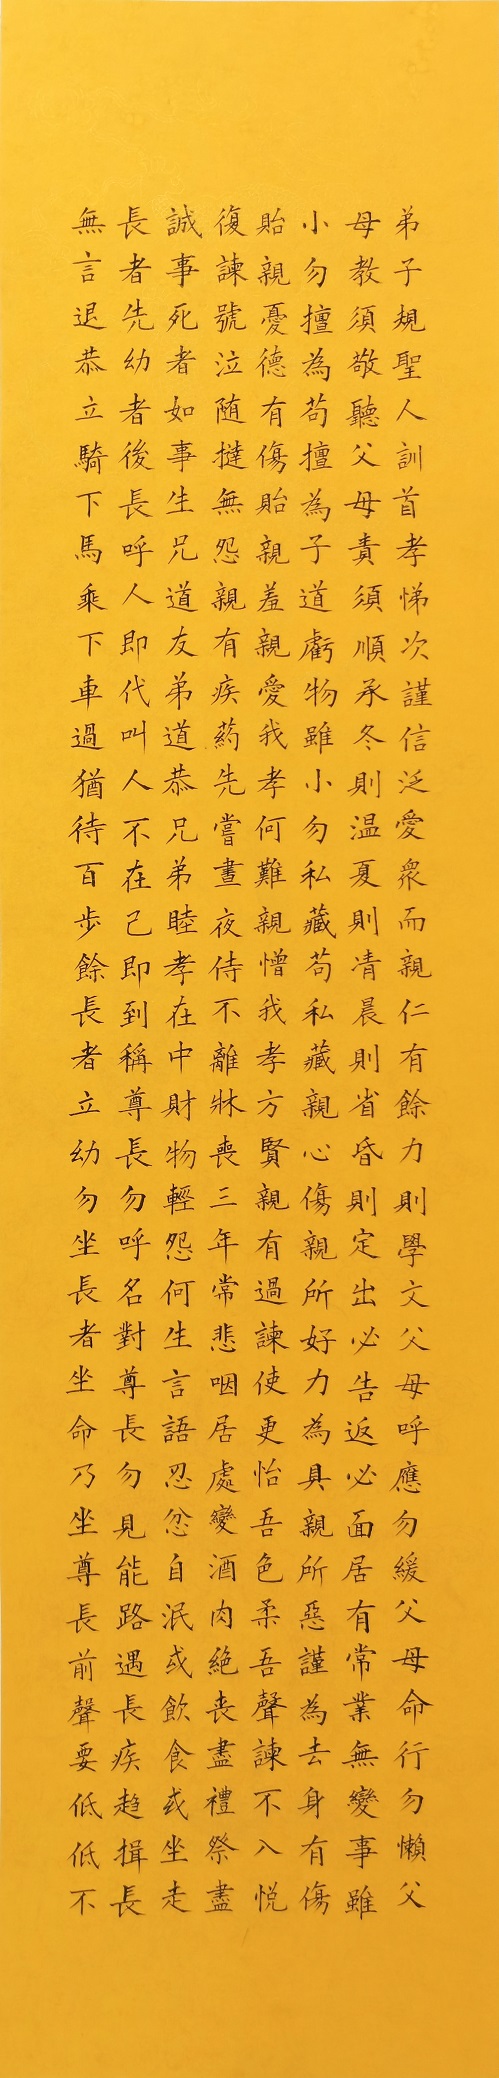 弟子規聖人訓首孝悌次謹信泛愛衆而親仁有餘力則學文父母呼應勿緩父母命行勿懶父
母教須敬聽父母責須順承冬則温夏則凊晨則省昏則定出必告返必面居有常業無變事雖
小勿擅為苟擅為子道虧物雖小勿私藏苟私藏親心傷親所好力為具親所惡謹為去身有傷
貽親憂德有傷貽親羞親愛我孝何難親憎我孝方賢親有過諫使更怡吾色柔吾聲諫不入悦
復諫號泣随撻無怨親有疾葯先嘗晝夜侍不離牀喪三年常悲咽居處變酒肉絶丧盡禮祭盡
誠事死者如事生兄道友弟道恭兄弟睦孝在中財物輕怨何生言語忍忿自泯或飲食或坐走
長者先幼者後長呼人即代叫人不在己即到稱尊長勿呼名對尊長勿見能路遇長疾趋揖長
無言退恭立騎下馬乘下車過猶待百步餘長者立幼勿坐長者坐命乃坐尊長前聲要低低不